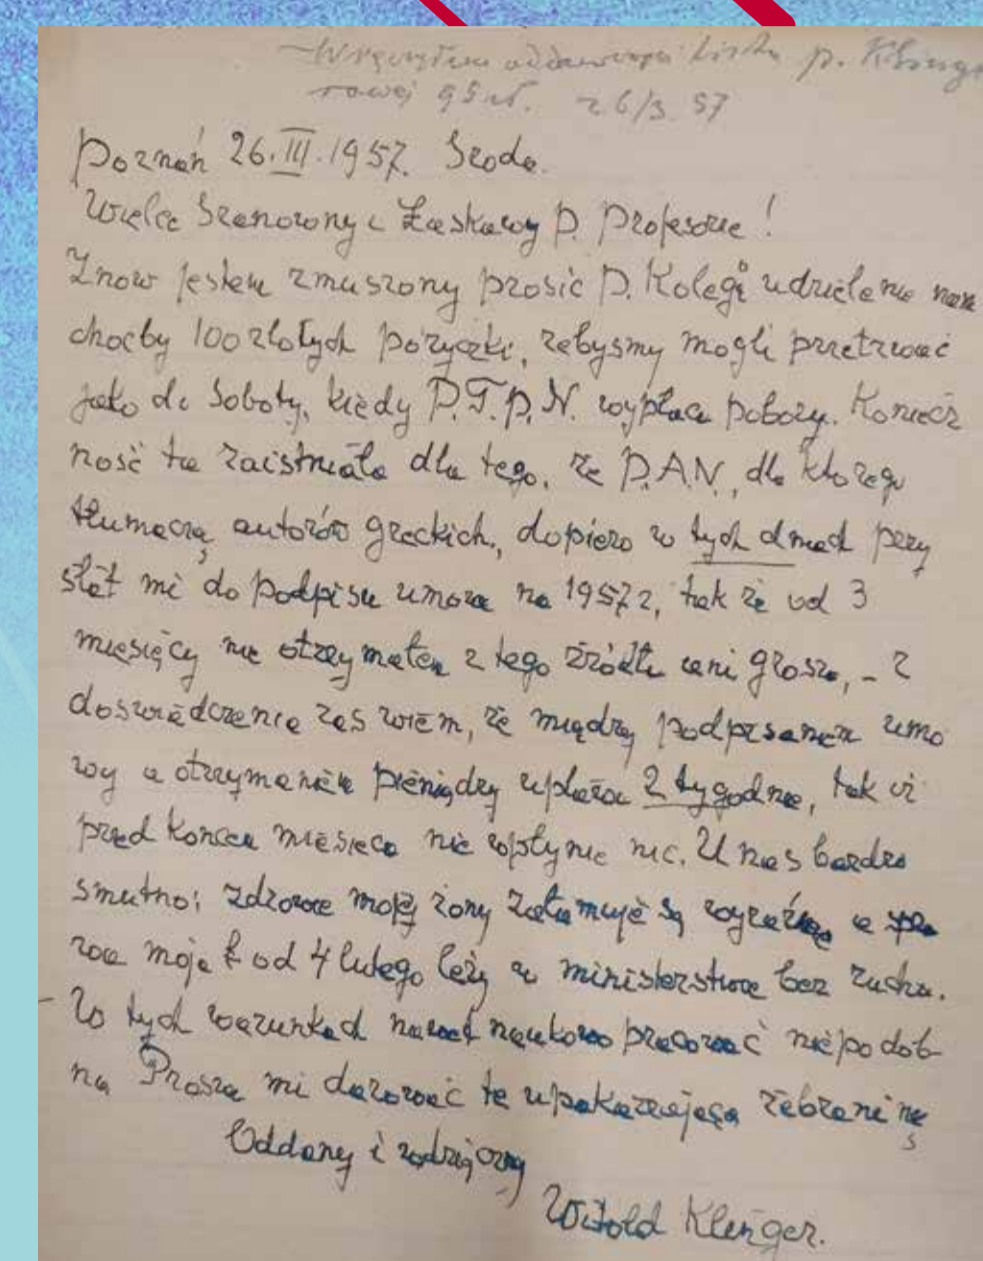 Wręczyłem oddawczyni listu p. Klinge
rowej 95 zł. 26/3 57
Poznań 26.III.1957. Sroda.
Wielce Szanowny i Łaskawy P. Profesorze!
Znow jestem zmuszony prosić P. Kolegę o udzielenie nam
choćby 100 zlotych pożyczki, żebysmy mogli przetrwać
jako do Soboty, kiedy P.T.P.N. wypłaca pobory. Koniecz
ność ta zaistniała dla tego, że P.A.N., dla ktorego
tłumaczą autorów greckich, dopiero w tych dniach przy
słał mi do podpisu umowę na 1957 r, tak że od 3
miesięcy nie otrzymałem z tego źródła ani grosza, - z
doswiadczenia zaś wiem, że między podpisaniem umo
wy a otrzymaniem pieniędzy upływa 2 tygodnie, tak iż
przed koncem miesiąca nie wpłynie nic. U nas bardzo
smutno: zdrowie mojej żony załamuje się wyraźnie a spra
wa moja od 4 lutego leży w ministerstwie bez ruchu.
W tych warunkach nawet naukowo pracować niepodob-
na Proszę mi darować tę upokarzającą żebraninę
Oddany i wdzięczny
Witold Klinger.